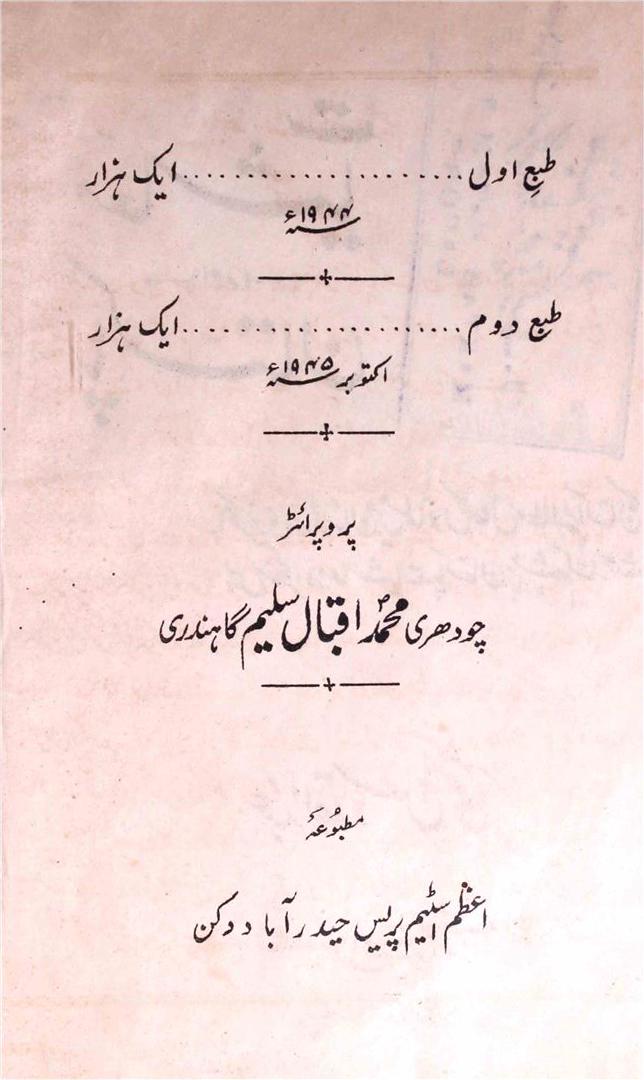 طبعِ اول ...................... ایک ہزار
سنہ ۱۹۴۴ء
طبع دوم ...................... ایک ہزار
اکتوبر سنہ ۱۹۴۵ء
پروپرائٹر
چودھری محمدؐ اقبال سلیم گاہندری
مطبوعۂ
اعظم اسٹیم پریس حیدرآباد دکن